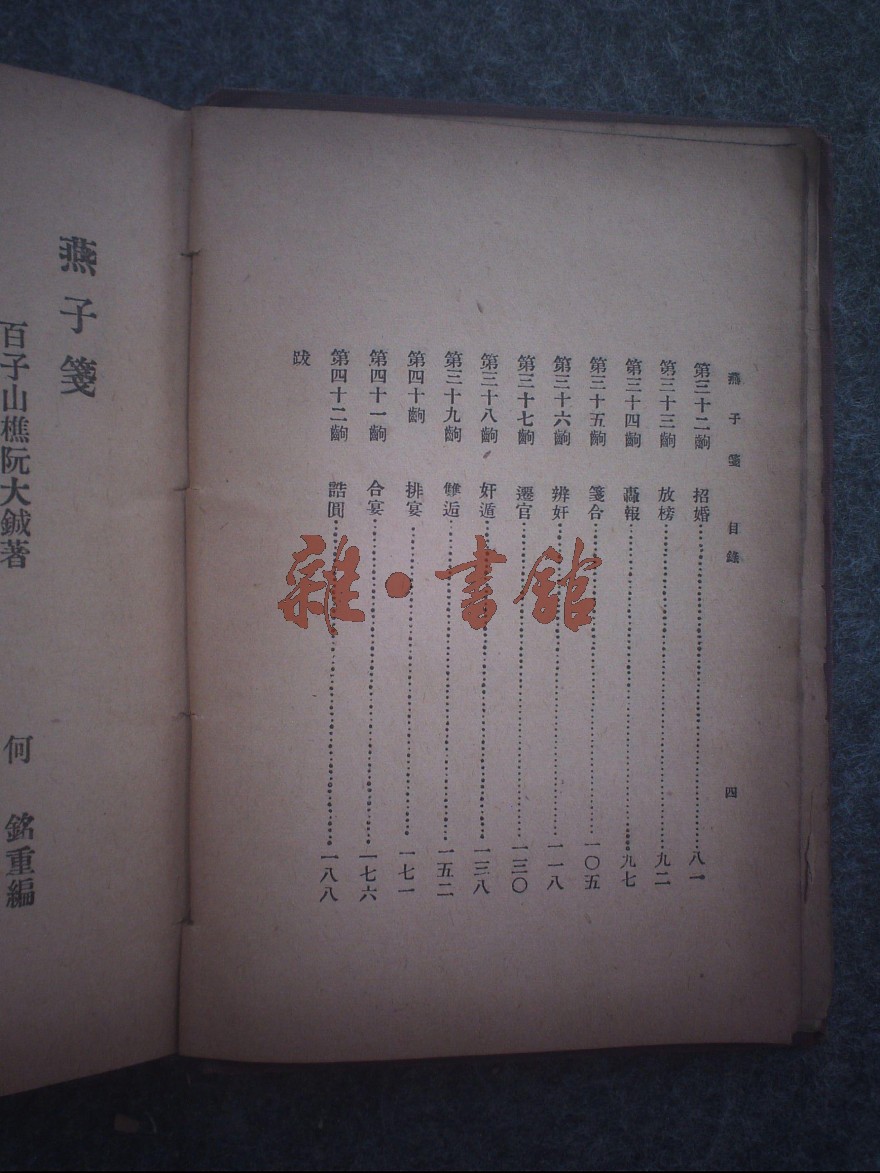 燕子箋 目錄 四
第三十二齣 招婚……八一
第三十三齣 放榜……九二
第三十四齣 轟報……九七
第三十五齣 箋合……一〇五
第三十六齣 辨奸……一一八
第三十七齣 遷官……一三〇
第三十八齣 奸遁……一三八
第三十九齣 雙逅……一五二
第四十齣 排宴……一七一
第四十一齣 合宴……一七六
第四十二齣 誥圓……一八八
跋
燕子箋
百子山樵阮大鋮著 何銘重編
雜·書館